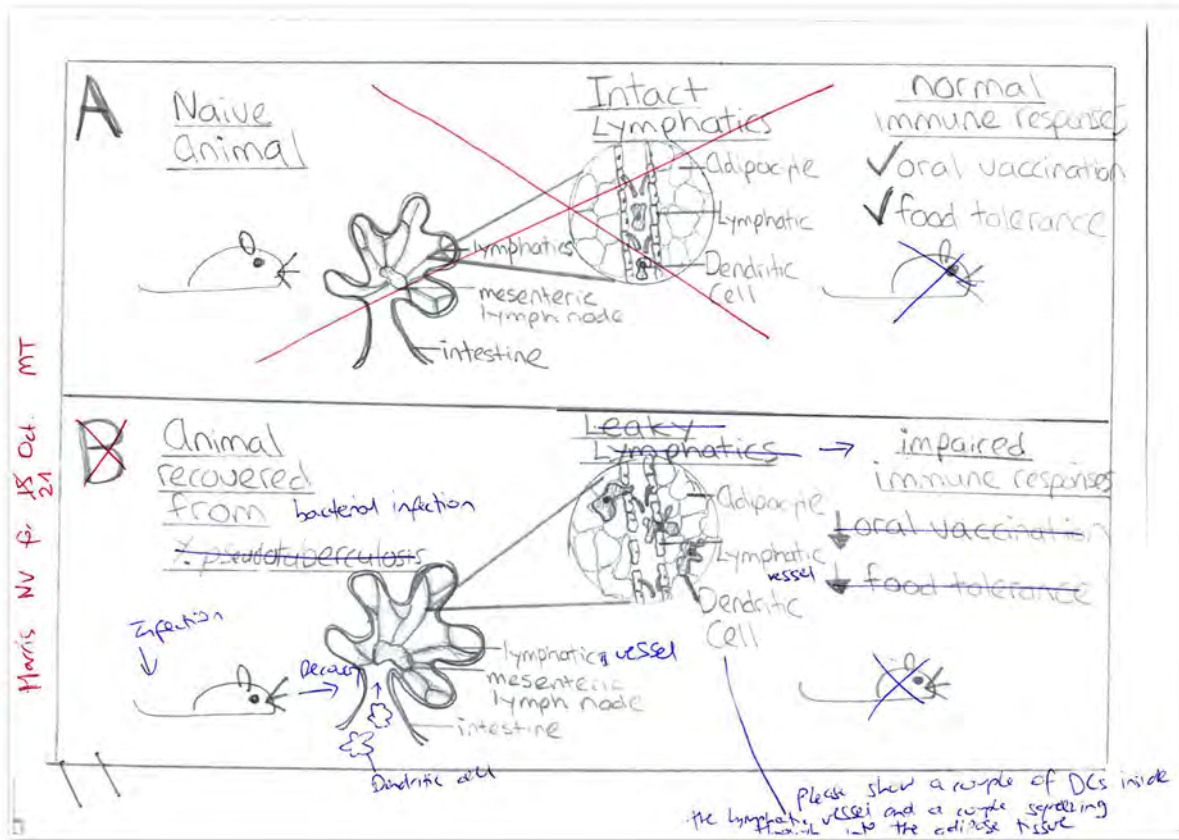 A
Naive
animal
Intact
Lymphatics
normal
immune responses
✓ oral vaccination
✓ food tolerance
Adipocyte
Lymphatic
Dendritic
Cell
lymphatics
mesenteric
lymph node
intestine
Harris NV for 18 Oct. MT
21
B
Animal
recovered
from bacterial infection
Y. pseudotuberculosis
Leaky
Lymphatics
impaired
immune responses
oral vaccination
food tolerance
Adipocyte
Lymphatic
vessel
Dendritic
Cell
Infection
lymphatic vessel
mesenteric
lymph node
intestine
Dendritic cell
Please show a couple of DCs inside
the lymphatic vessel and a couple squeezing
through into the adipose tissue